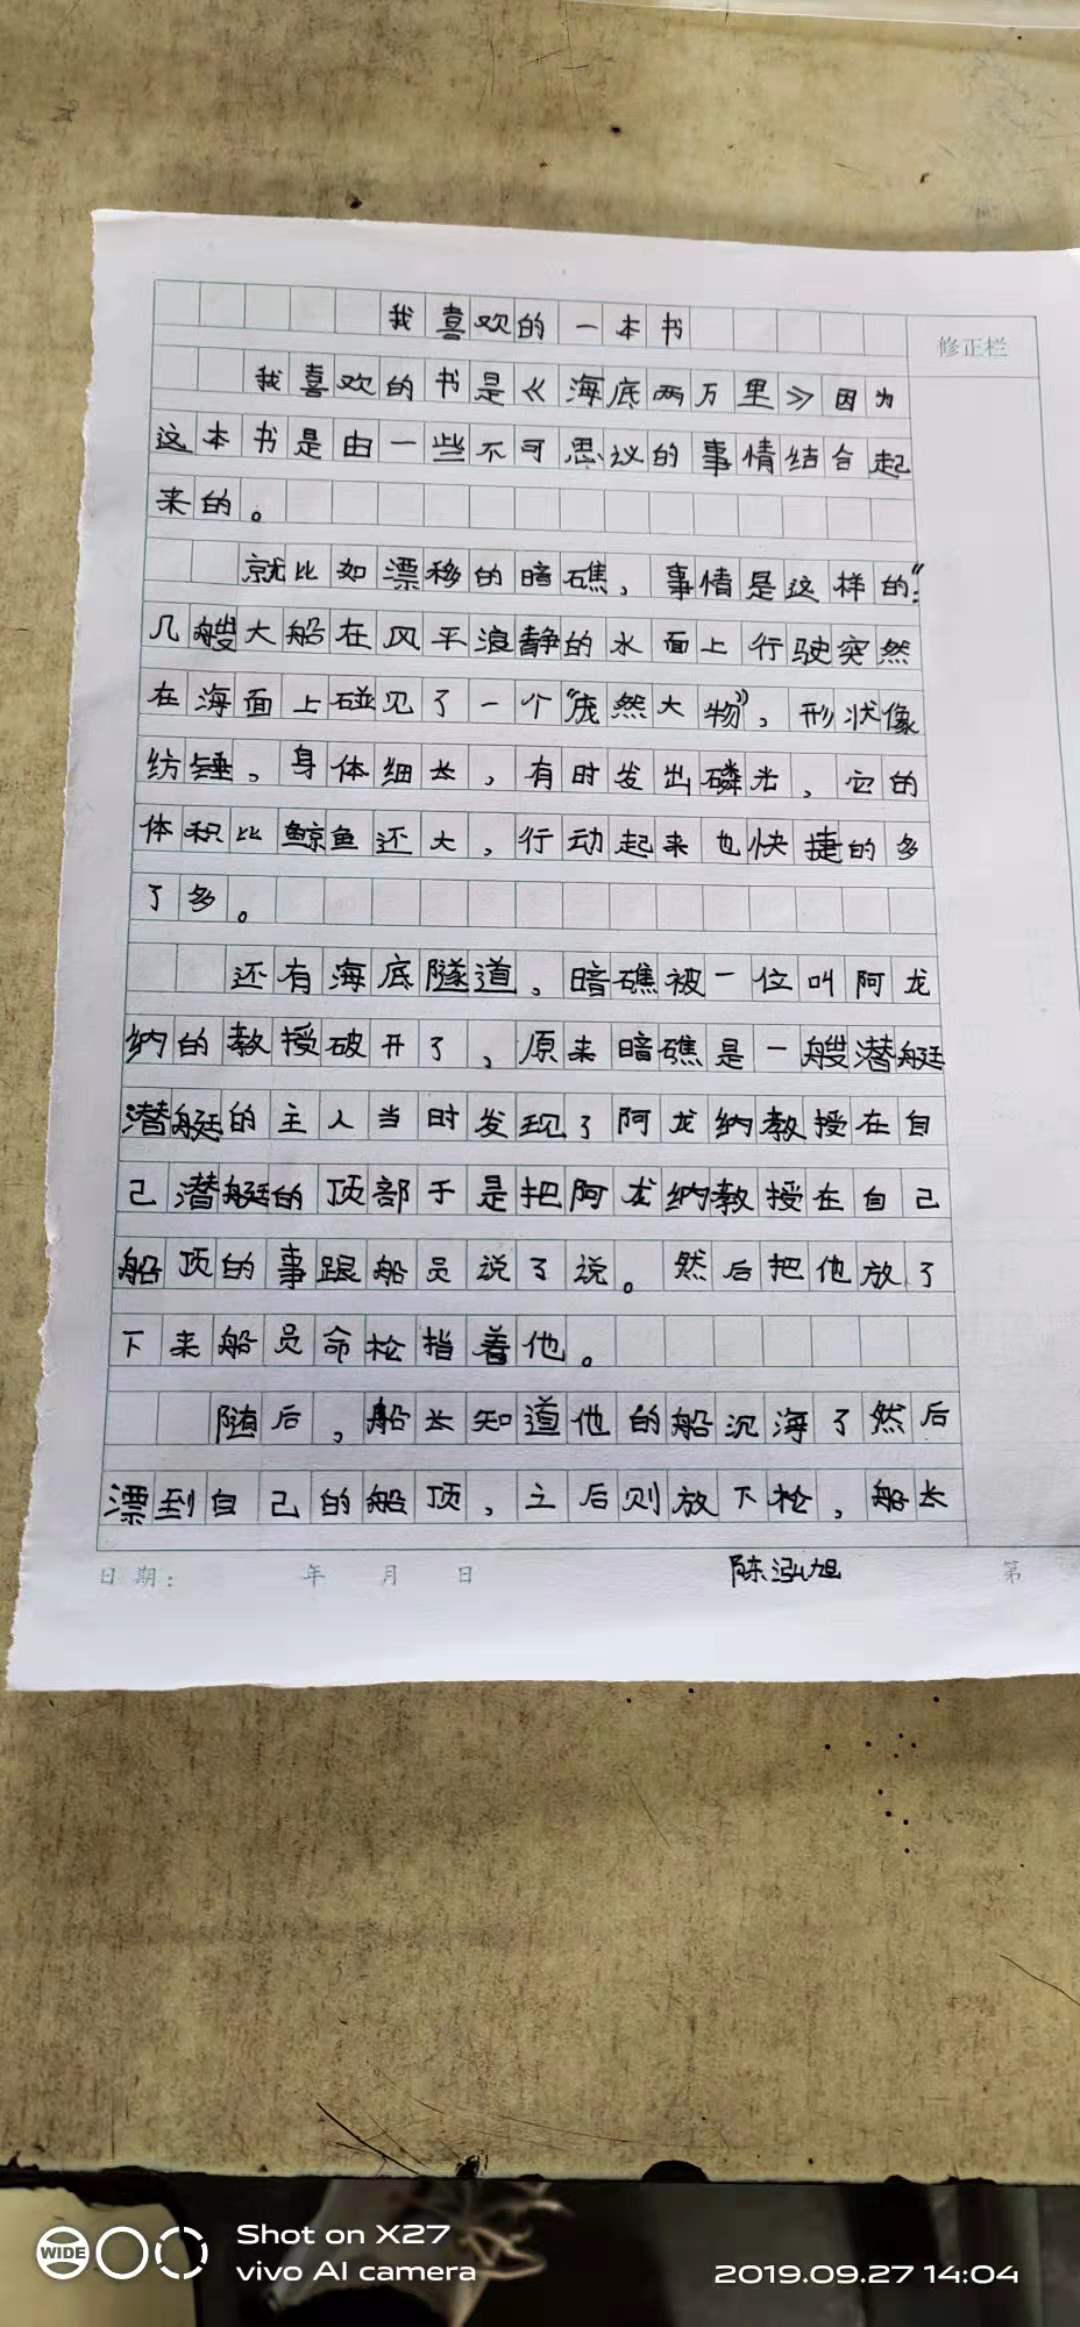 我喜欢的一本书
修正栏
我喜欢的书是《海底两万里》因为
这本书是由一些不可思议的事情结合起
来的。
就比如漂移的暗礁，事情是这样的：“
几艘大船在风平浪静的水面上行驶突然
在海面上碰见了一个“庞然大物”，形状像
纺锤。身体细长，有时发出磷光，它的
体积比鲸鱼还大，行动起来也快捷的多
了多。
还有海底隧道。暗礁被一位叫阿龙
纳的教授破开了，原来暗礁是一艘潜艇
潜艇的主人当时发现了阿龙纳教授在自
己潜艇的顶部于是把阿龙纳教授在自己
船顶的事跟船员说了说。然后把他放了
下来船员命枪指着他。
随后，船长知道他的船沉海了然后
漂到自己的船顶，之后则放下枪，船长
日期： 年 月 日 陈泓旭 第
WIDE
Shot on X27
vivo AI camera
2019.09.27 14:04